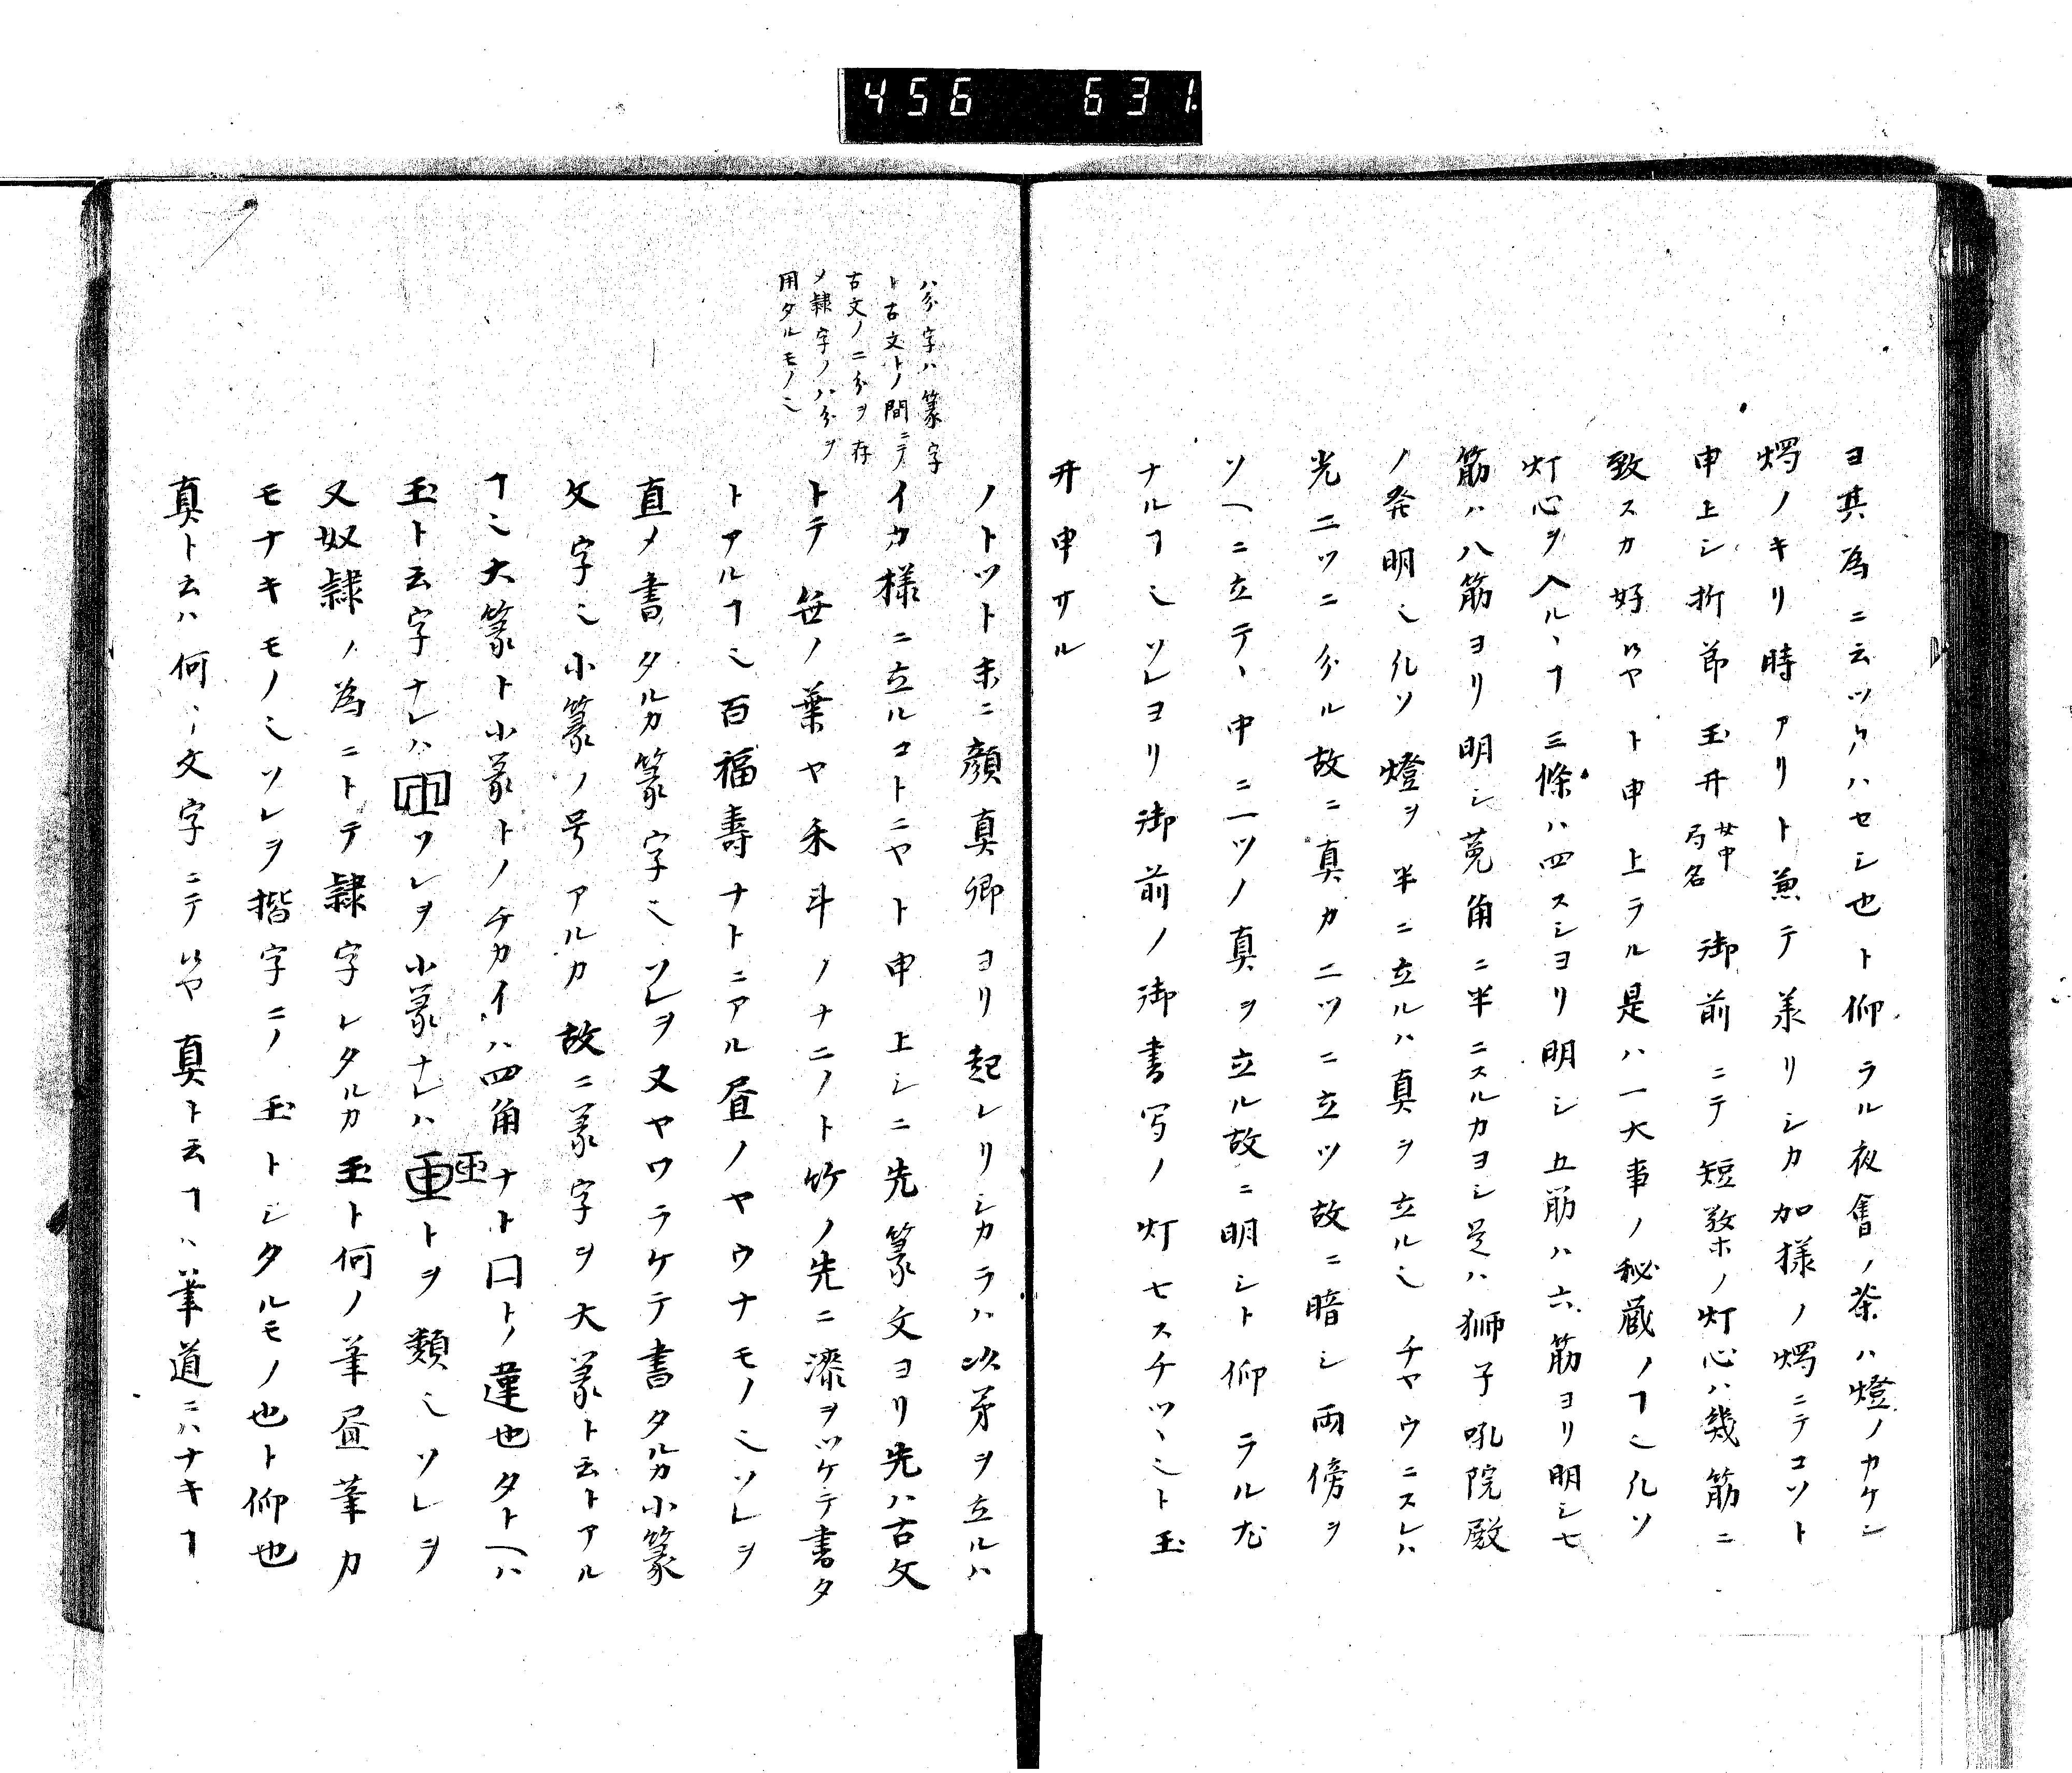 456 631
ヨ其為ニ云ツクハセシ也ト仰ラル夜會ノ茶ハ燈ノカケン
燭ノキリ時アリト兼テ羕リシカ加様ノ燭ニテコソト
申上シ折節玉井女中局名御前ニテ短檠ホノ灯心ハ幾筋ニ
致スカ好ヤト申上ラル是ハ一大事ノ秘蔵ノヿ也凡ソ
灯心ヲ入ルヽヿ三條ハ四スシヨリ明シ五筋ハ六筋ヨリ明シ七
筋ハ八筋ヨリ明シ莵角ニ半ニスルカヨシ是ハ獅子吼院殿
ノ発明也凡ソ燈ヲ半ニ立ルハ真ヲ立ル也チヤウニスレハ
光ニツニ分ル故ニ真カ二ツニ立ツ故ニ暗シ両傍ヲ
ソヘニ立テヽ中ニ一ツノ真ヲ立ル故ニ明シト仰ラル尤
ナルヿ也ソレヨリ御前ノ御書写ノ灯七スチツヽ也ト玉
井申サル
八分字ハ篆字
ト古文トノ間ニテ
古文ノ二分ヲ存
メ隷字ノ八分ヲ
用タルモノ也
ノトツト末ニ顔真卿ヨリ起レリシカラハ次第ヲ立ルハ
イカ様ニ立ルコトニヤト申上シニ先篆文ヨリ先ハ古文
トテ笹ノ葉ヤ禾斗ノナニノト竹ノ先ニ漆ヲツケテ書タ
トアルヿ也百福壽ナトニアル昼ノヤウナモノ也ソレヲ
直メ書タルカ篆字也ソレヲ又ヤワラケテ書タルカ小篆
文字也小篆ノ号アルカ故ニ篆字ヲ大篆ト云トアル
ヿ也大篆ト小篆トノチカイハ四角ナト口トノ違也タトヘハ
玉ト云字ナレハソレヲ小篆ナレハトヲ類也ソレヲ
又奴隷ノ為ニトテ隷字レタルカ玉ト何ノ筆昼筆カ
モナキモノ也ソレヲ揩字ニノ玉トシタルモノ也ト仰也
真ト云ハ何ノ文字ニテヤ真ト云ヿハ筆道ニハナキヿ